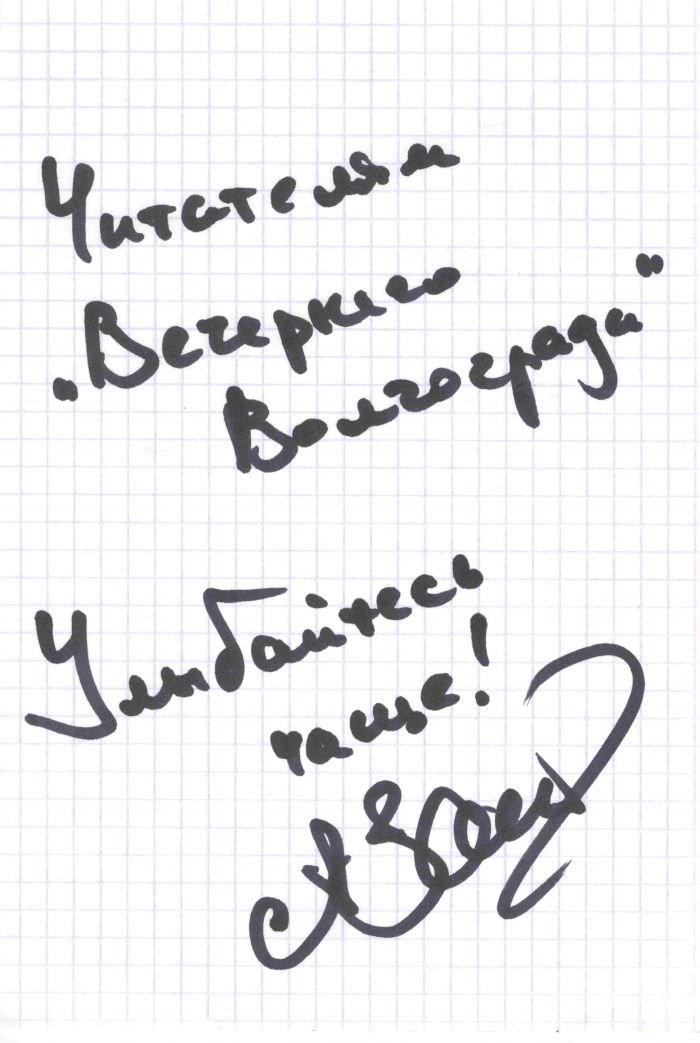 Читателям
„Вечернего
Волгограда"
Улыбайтесь
чаще!